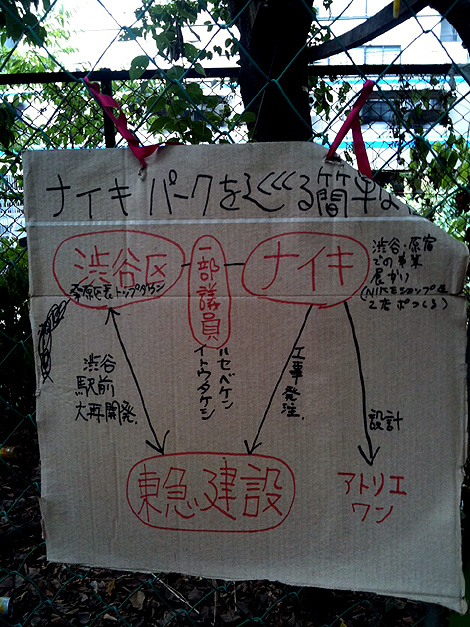 ナイキパークを巡る簡単な
渋谷区
桑原区長トップダウン
一部議員
ハセベケン
イトウタケシ
ナイキ
渋谷・原宿
での事業
展開
(NIKEショップを
2店
つくる)
渋谷
駅前
大再開発.
工事発注.
設計
東急建設
アトリエ
ワン